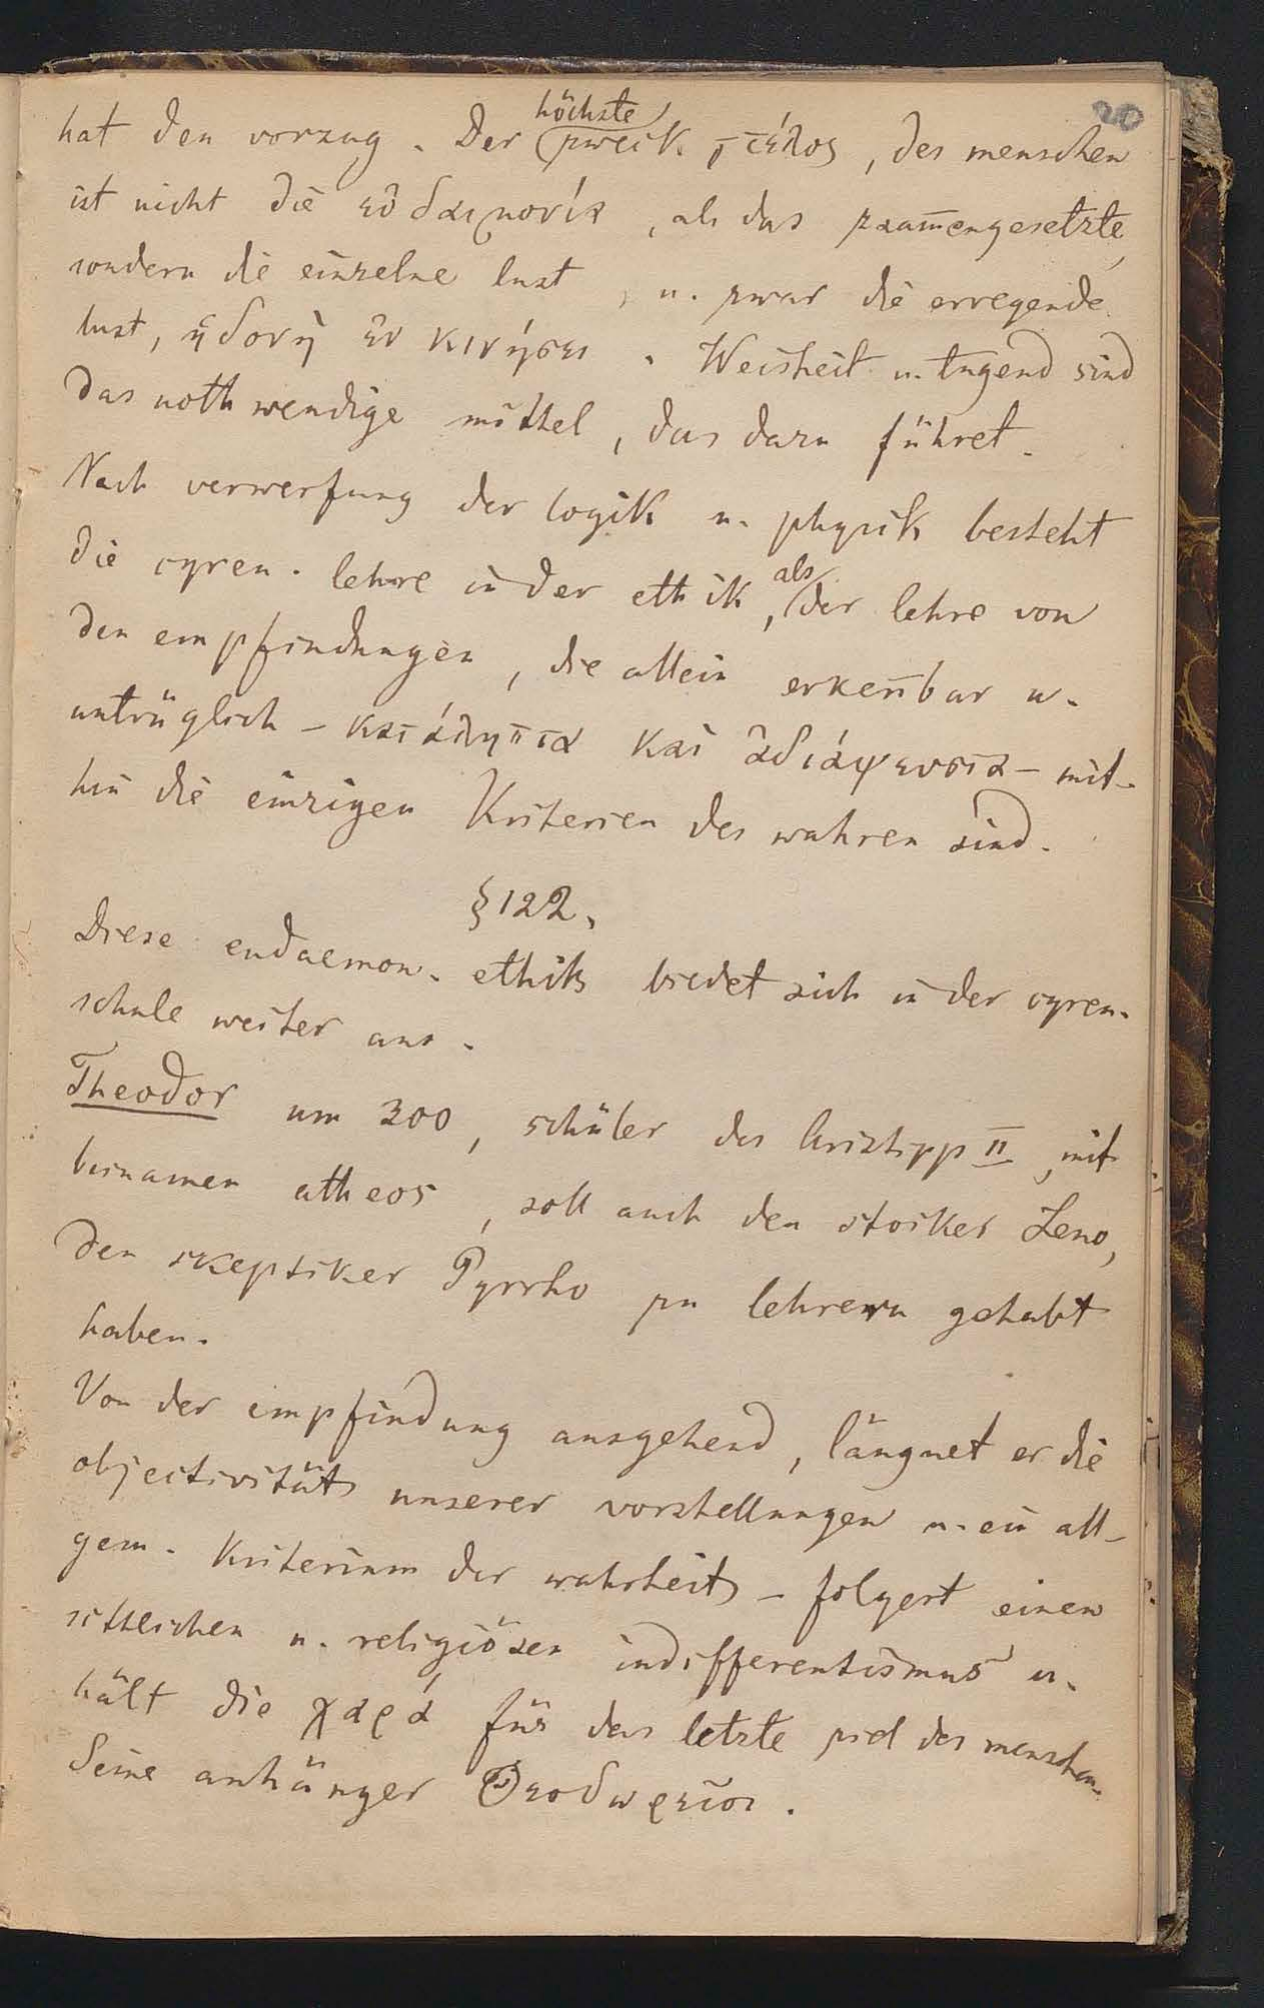 20
hat den vorzug. Der höchste zweck, τέλος, des menschen
ist nicht die εὐδαιμονία, als das zsam̅engesetzte,
sondern die einzelne lust, u. zwar die erregende
lust, ἡδονὴ ἐν κινήσει. Weisheit u. tugend sind
das nothwendige mittel, das dazu führet.
Nach verwerfung der logik u. physik besteht
die cyren. lehre in der ethik, als der lehre von
den empfindungen, die allein erken̅bar u.
untrüglich – κατάληπτα καὶ ἀδιάψευστα – mit-
hin die einzigen Kriterien des wahren sind.
§ 122.
Diese eudaemon. ethik bildet sich in der cyren.
schule weiter aus.
Theodor um 300, schüler des Aristipp II, mit
beinamen atheos, soll auch den stoiker Zeno,
den skeptiker Pyrrho zu lehrern gehabt
haben.
Von der empfindung ausgehend, läugnet er die
objectivität unserer vorstellungen u. ein all-
gem. Kriterium der wahrheit – folgert einen
sittlichen u. religiösen indifferentismus u.
hält die χαρά für das letzte ziel des menschen.
Seine anhänger Θεοδωρεῖοι.